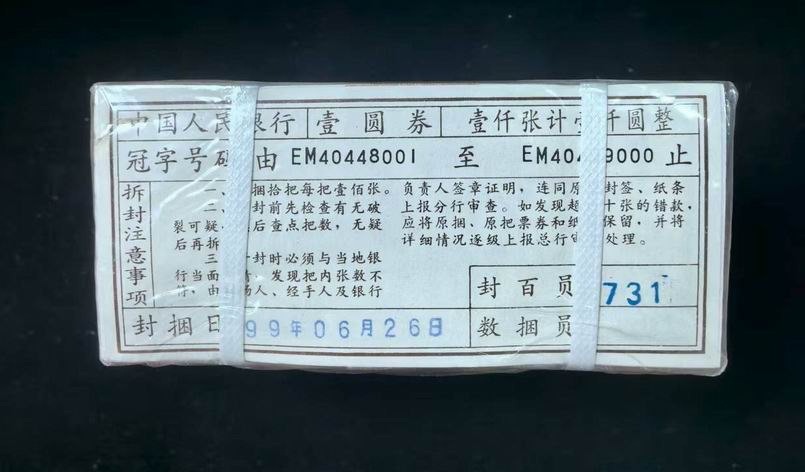 中国人民银行 壹圆券 壹仟张计壹仟圆整
冠字号码由 EM40448001 至 EM404 9000 止
拆封注意事项
一、 捆拾把每把壹佰张。
二、 封前先检查有无破
裂可疑 后查点把数，无疑
后再拆
三 封时必须与当地银
行当面 ，发现把内张数不
符，由 场人、经手人及银行
负责人签章证明，连同原 封签、纸条
上报分行审查。如发现超 十张的错款，
应将原捆、原把票券和纸 保留，并将
详细情况逐级上报总行审 处理。
封百员 731
封捆日 99年06月26日
数捆员